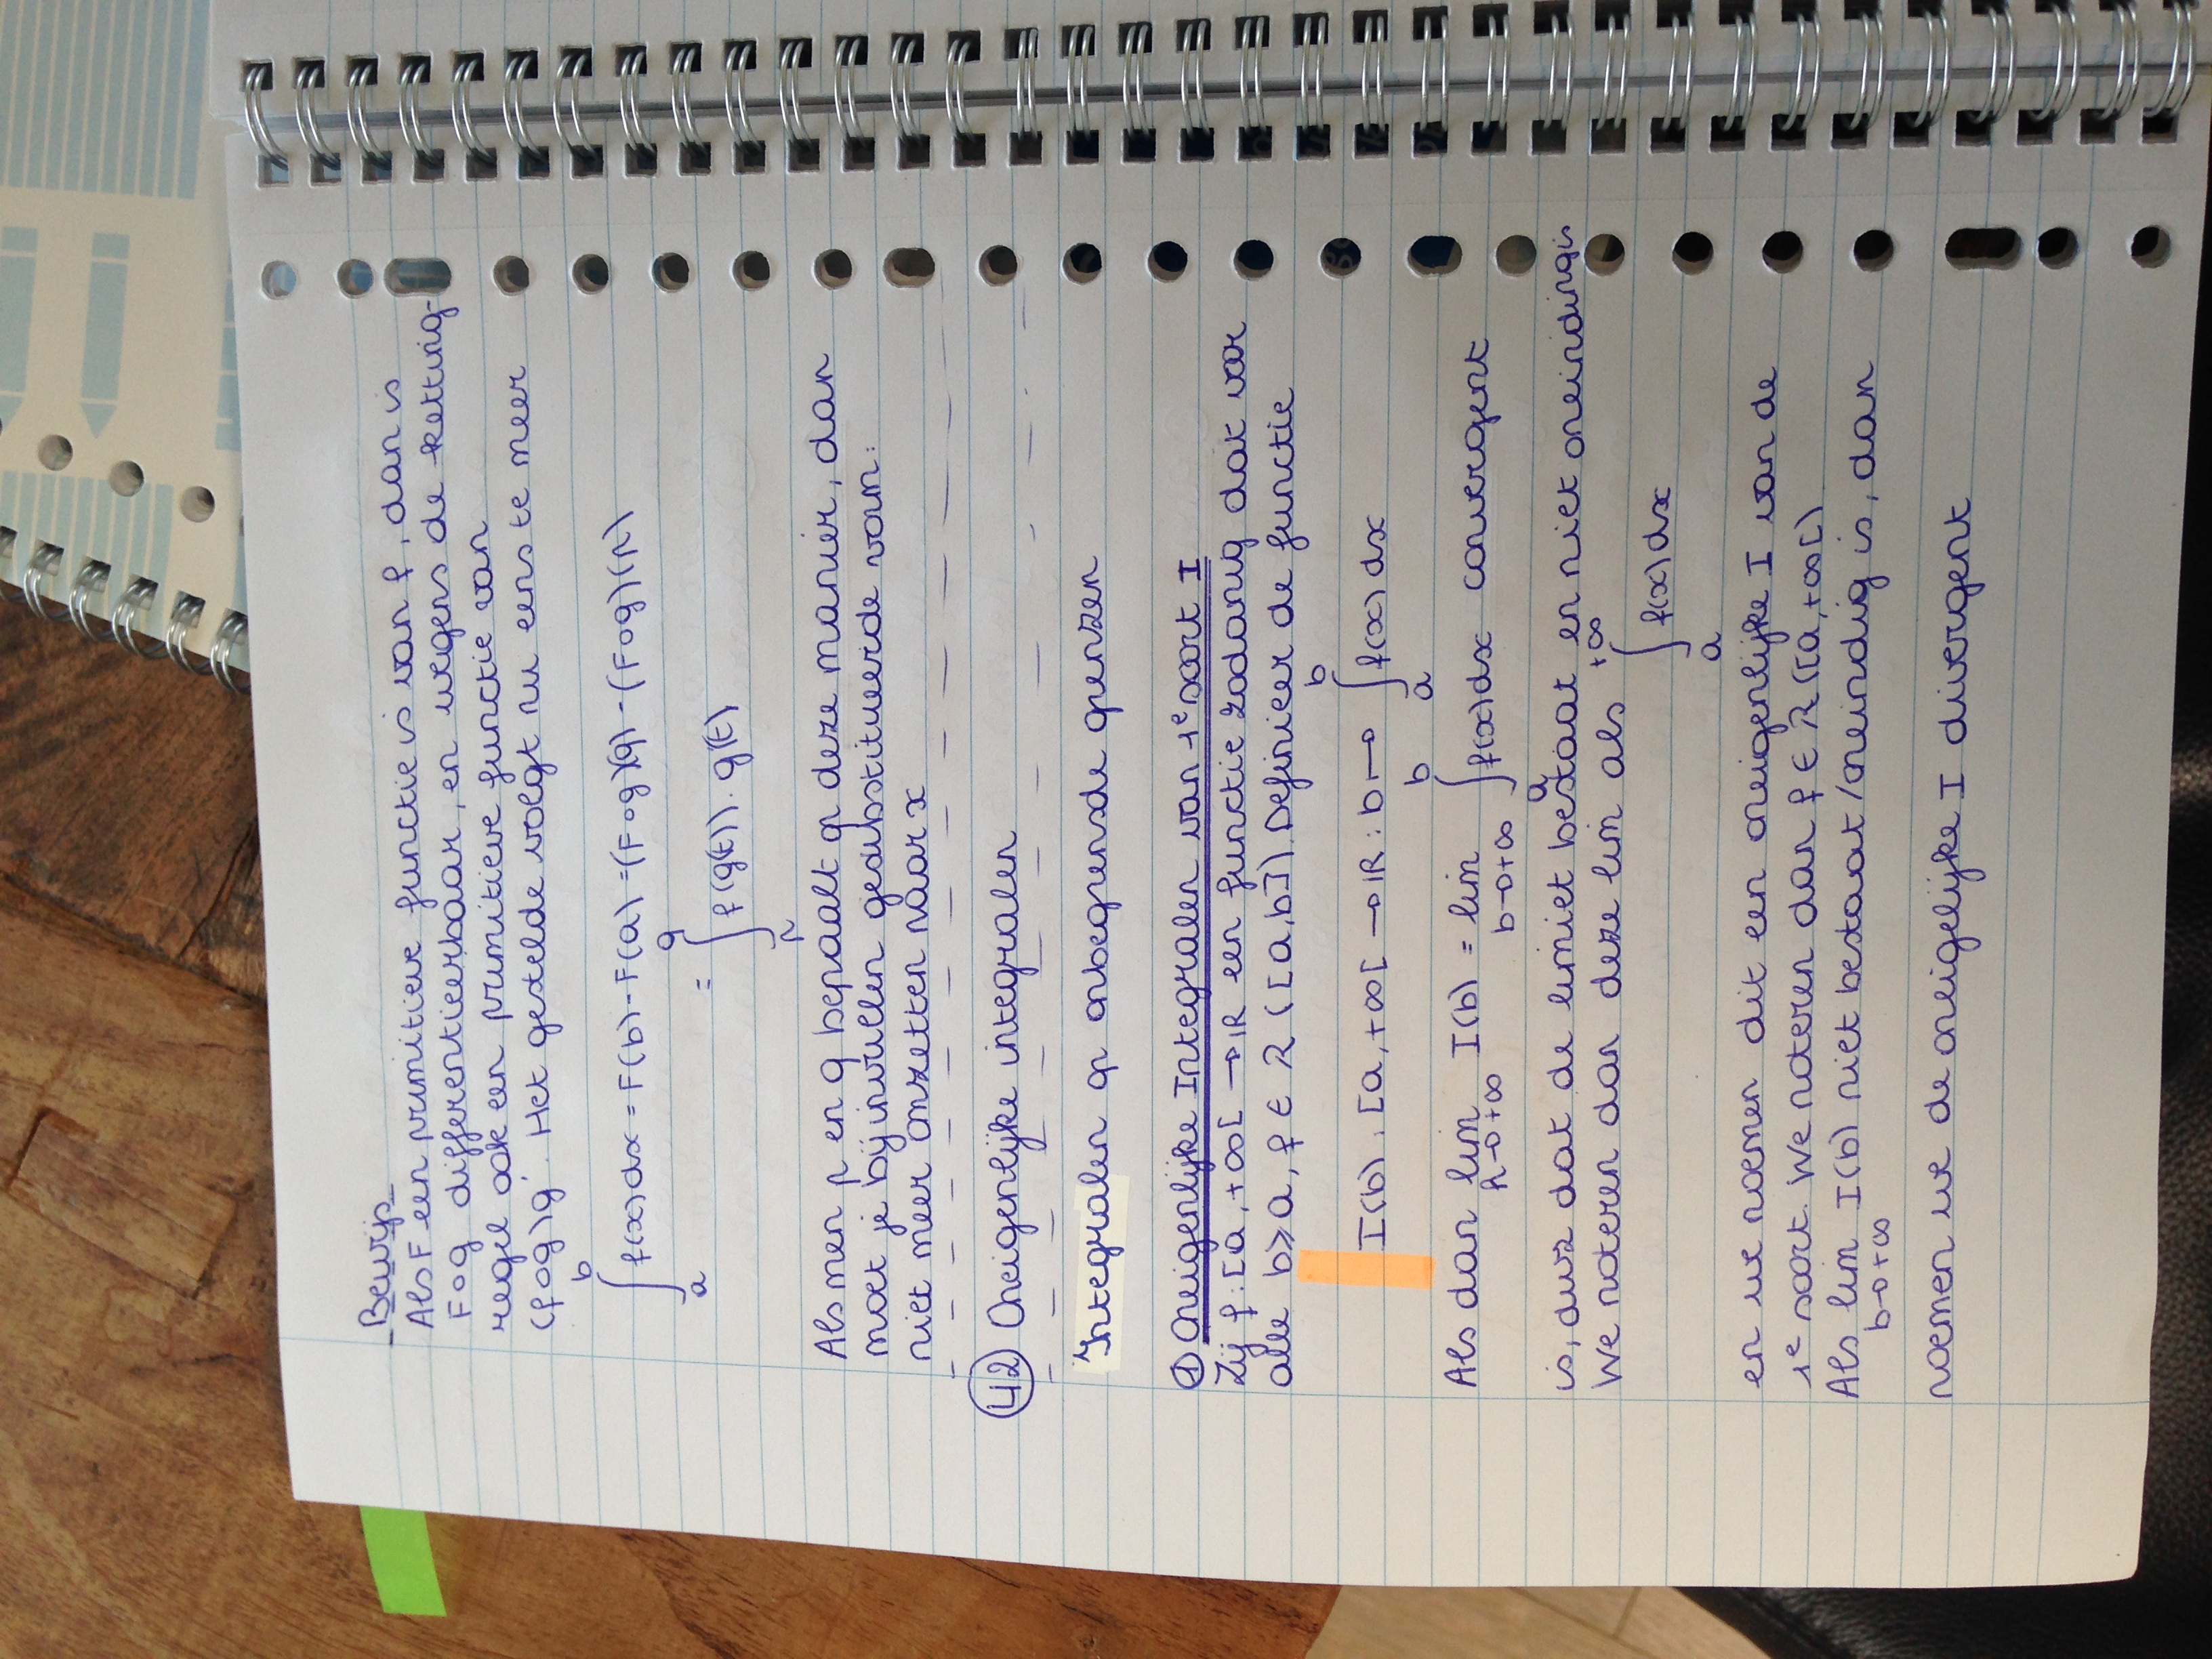 Bewijs
Als F een primitieve functie is van f, dan is
F∘g differentieerbaar, en wegens de ketting-
regel ook een primitieve functie van
(f∘g)g'. Het gestelde volgt nu eens te meer
b
∫ f(x)dx = F(b) - F(a) = (F∘g)(q) - (F∘g)(p)
a
q
= ∫ f(g(t)). g'(t)
p
Als men p en q bepaalt op deze manier, dan
moet je bij invullen gesubstitueerde vorm:
niet meer omzetten naar x
42 Oneigenlijke integralen
Integralen op onbegrensde grenzen
① Oneigenlijke Integralen van 1e soort I
Zij f: [a, +∞[ → ℝ een functie zodanig dat voor
alle b ≥ a, f ∈ R ([a,b]). Definieer de functie
b
I(b) : [a, +∞[ → ℝ : b ↦ ∫ f(x) dx
a
b
Als dan lim I(b) = lim ∫ f(x)dx convergent
h→+∞ b→+∞ a
is, dwz dat de limiet bestaat en niet oneinding is
We noteren dan deze lim als +∞
∫ f(x)dx
a
en we noemen dit een oneigenlijke I van de
1e soort. We noteren dan f ∈ R ([a, +∞[)
Als lim I(b) niet bestaat/oneindig is, dan
b→+∞
noemen we de oneigelijke I divergent